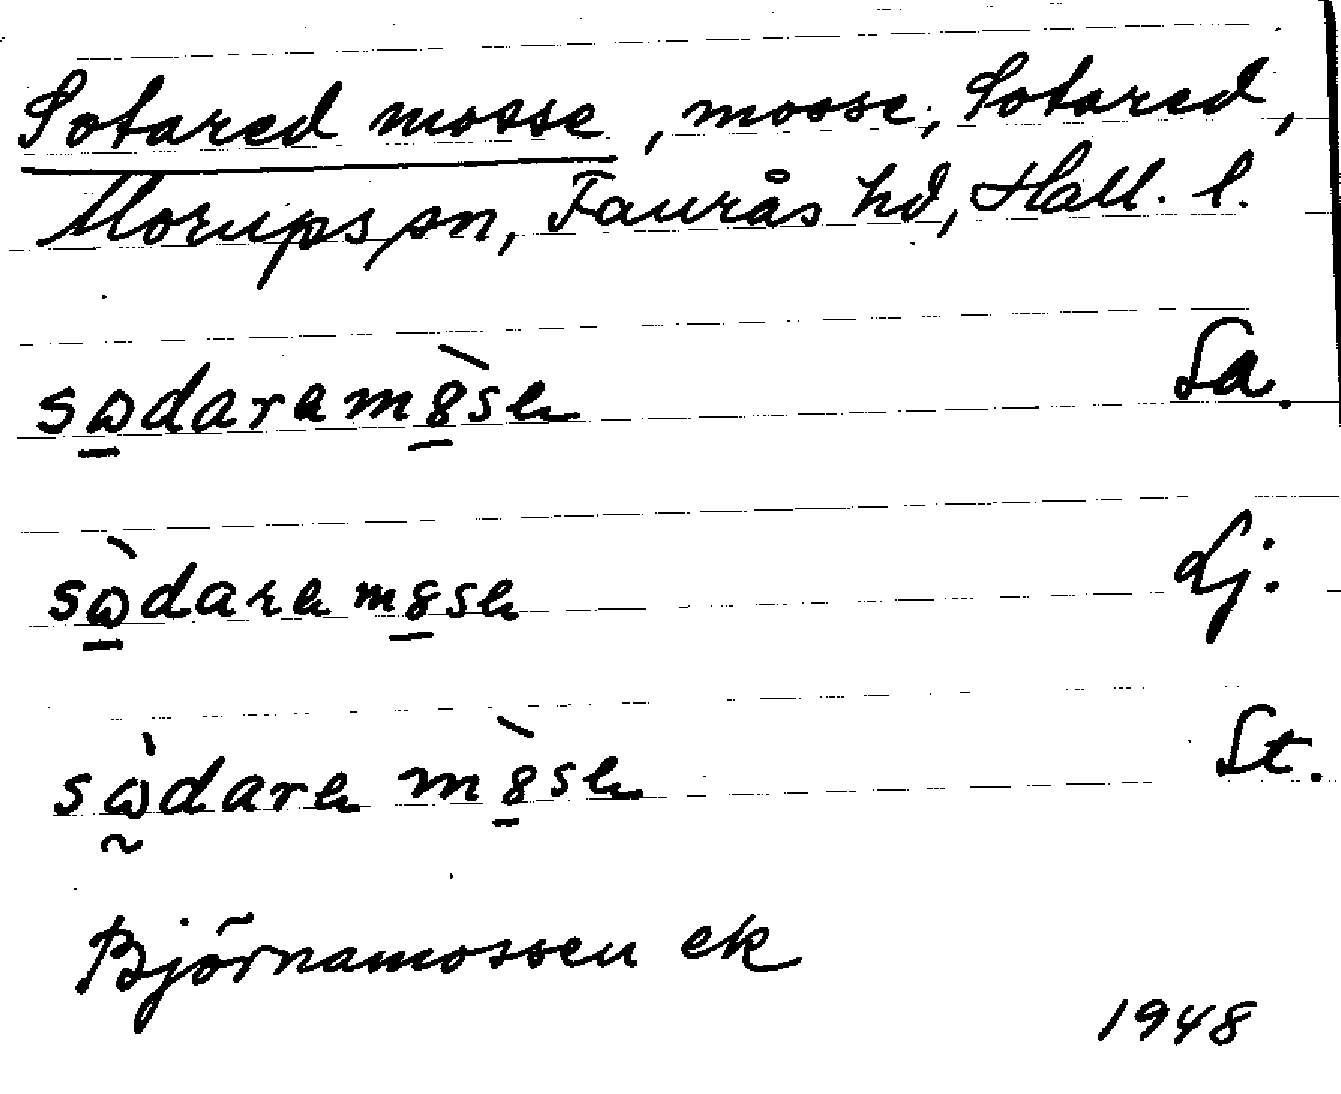 Sotared mosse, mosse, Sotared,
Morups sn, Faurås hd, Hall. l.
sωdaram8sə Sa.
sὼdarə m8sə Lj.
sὼdarə m8̀sə St.
Björnamossen ek
1948